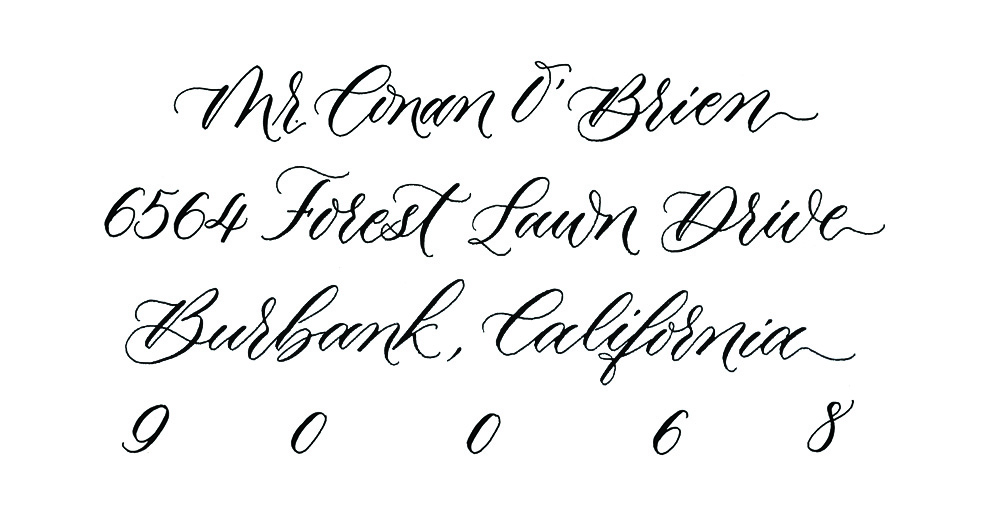 Mr. Conan O'Brien
6564 Forest Lawn Drive
Burbank, California
9 0 0 6 8